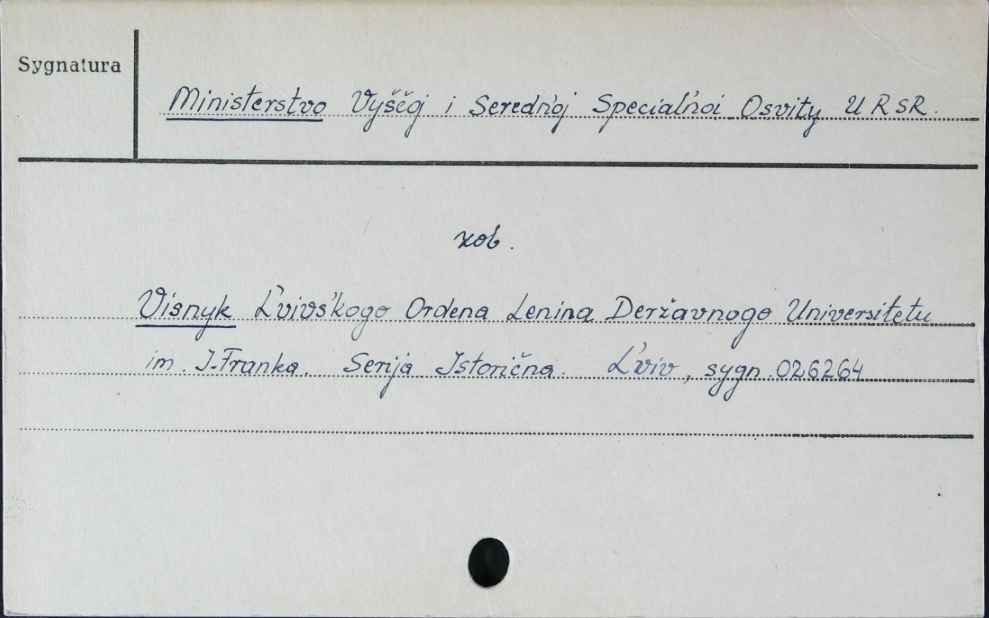 Sygnatura
Ministerstvo Vyščoj i Seredńoj Specialńoi Osvity URSR.
zob.
Visnyk Ĺvivśkogo Ordena Lenina Deržavnogo Universitetu
im. I. Franka. Serija Istorična. Ĺviv, sygn. 026264